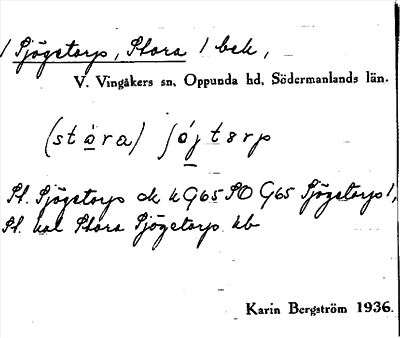 Sjögetorp, Stora 1 bek,
V. Vingåkers sn, Oppunda hd, Södermanlands län.
(stóra) ʃójtɵrp
St. Sjögetorp dk k G65 SO G65 Sjögetorp 1,
St. kal Stora Sjögetorp kb
Karin Bergström 1936.